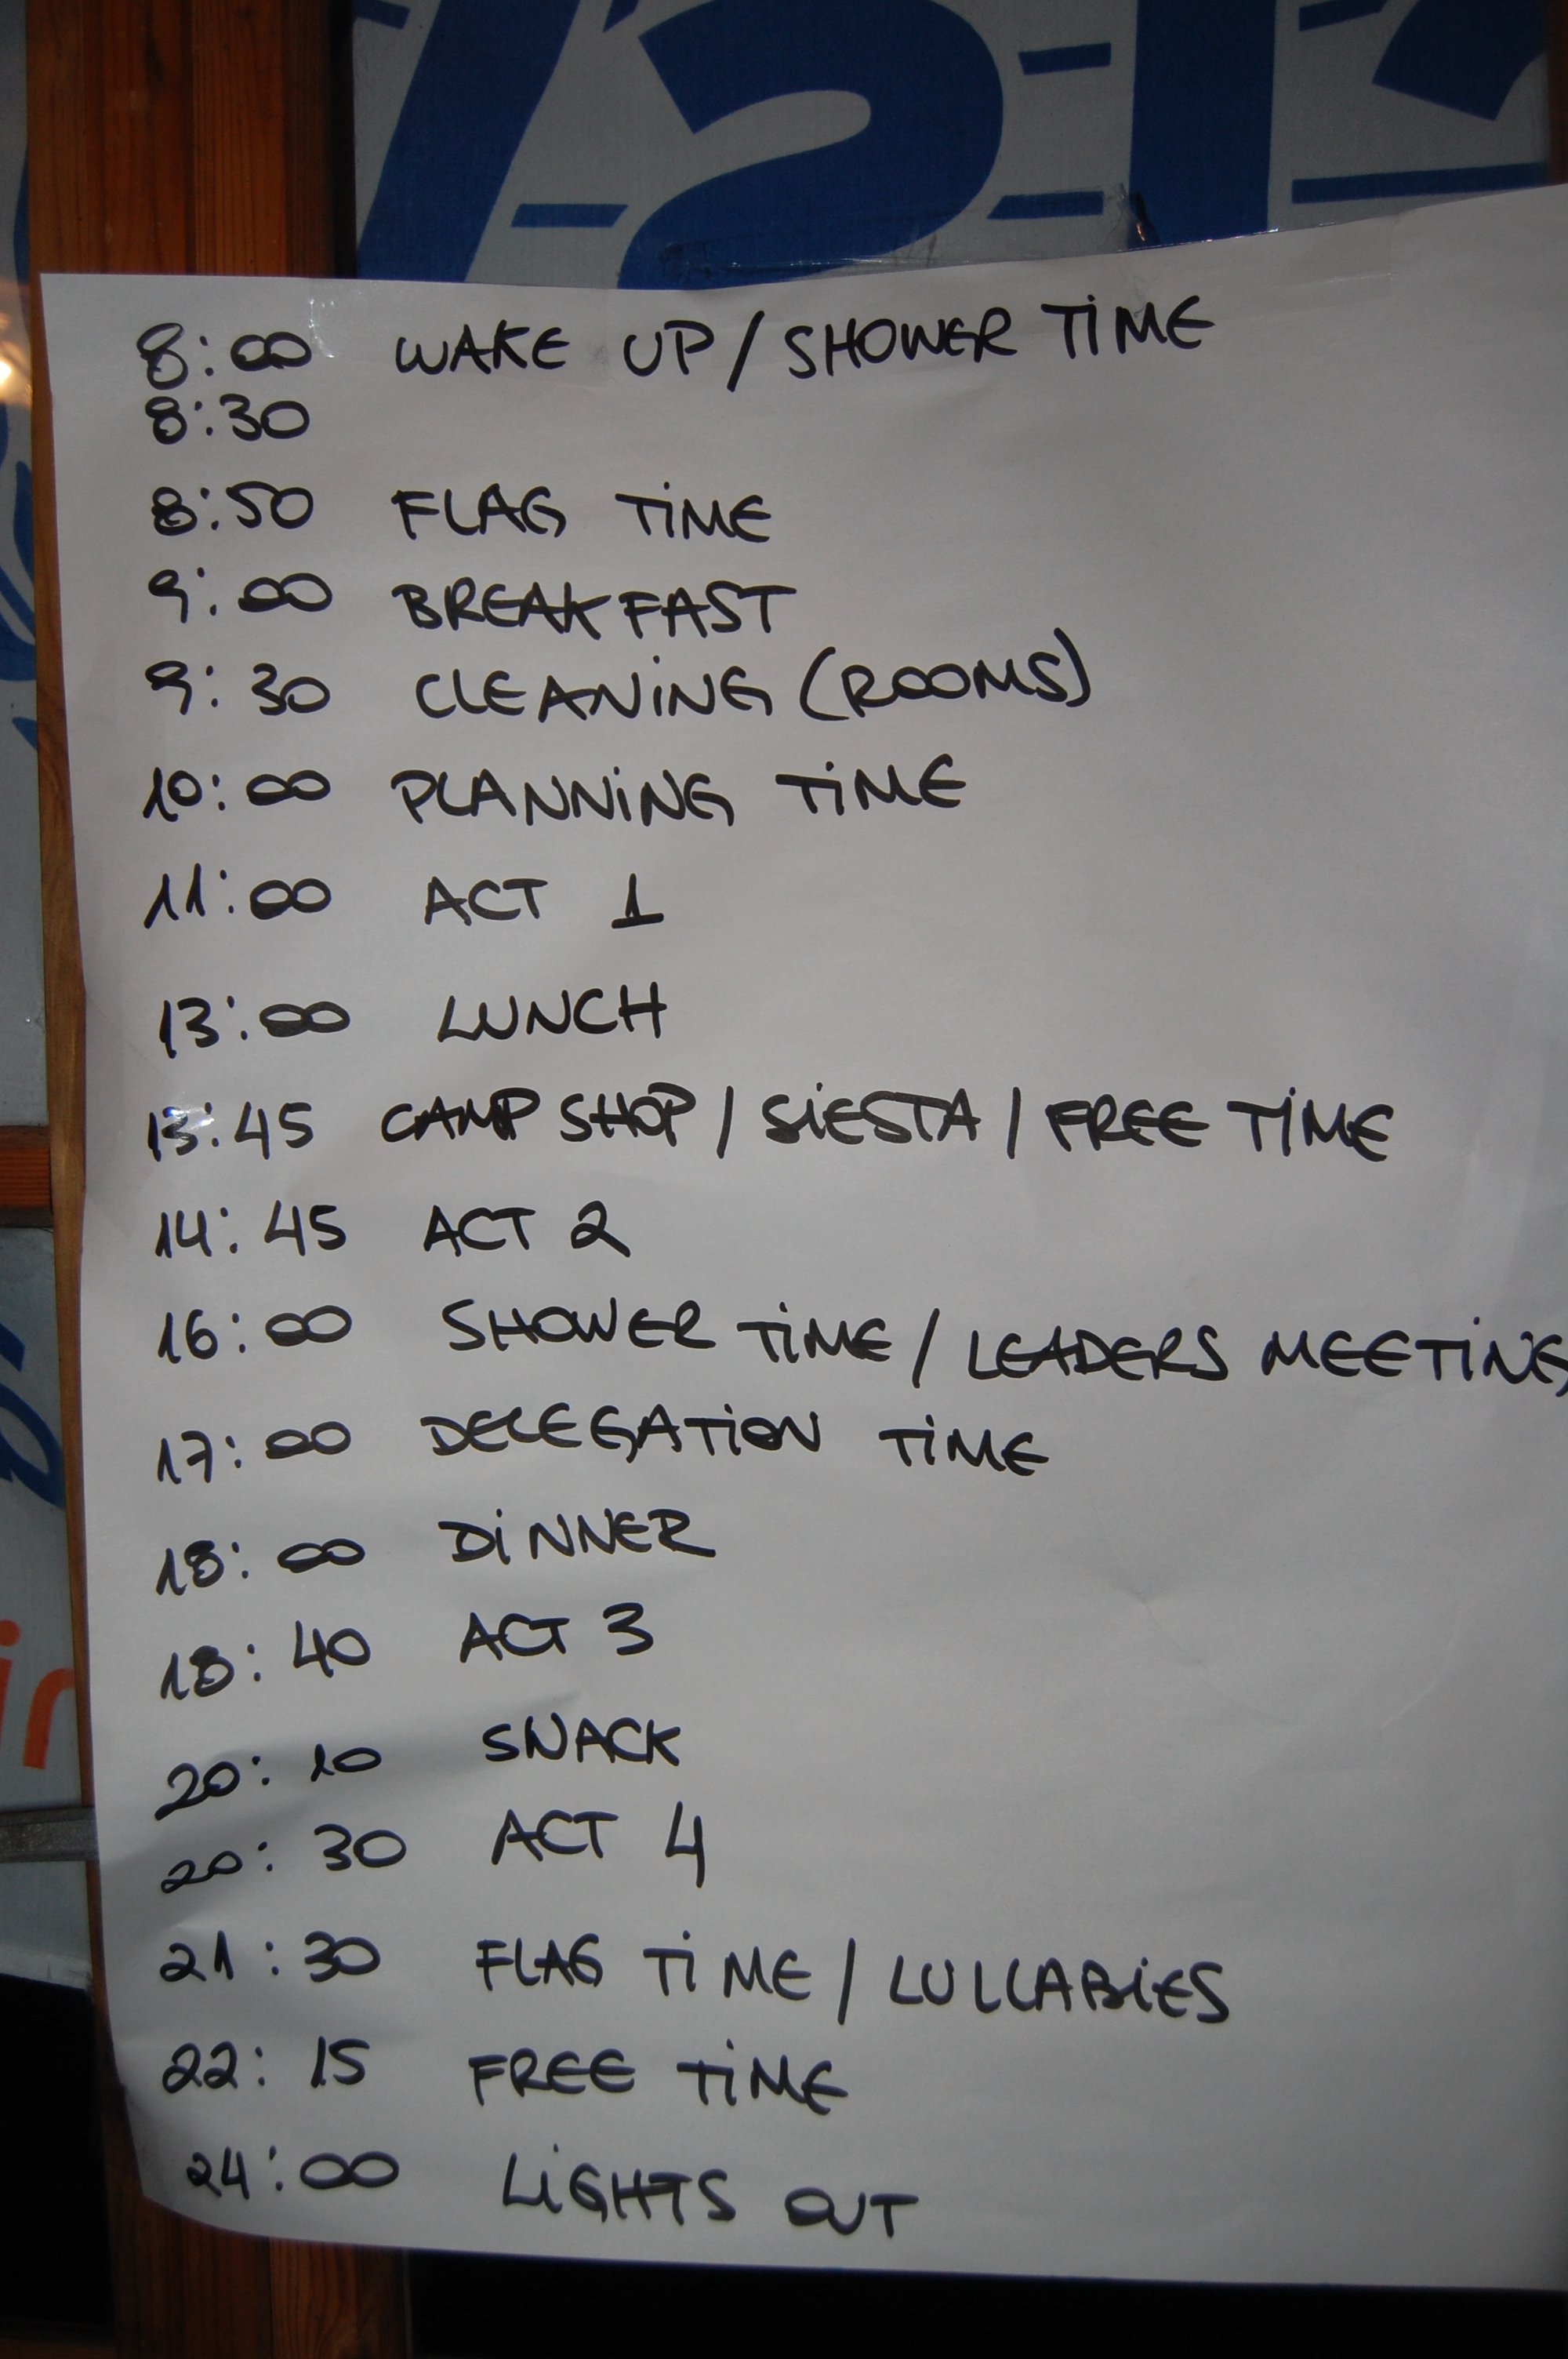 8:00 WAKE UP / SHOWER TIME
8:30
8:50 FLAG TIME
9:00 BREAKFAST
9:30 CLEANING (ROOMS)
10:00 PLANNING TIME
11:00 ACT 1
13:00 LUNCH
13:45 CAMP SHOP / SIESTA / FREE TIME
14:45 ACT 2
16:00 SHOWER TIME / LEADERS MEETING
17:00 DELEGATION TIME
18:00 DINNER
18:40 ACT 3
20:10 SNACK
20:30 ACT 4
21:30 FLAG TIME / LULLABIES
22:15 FREE TIME
24:00 LIGHTS OUT